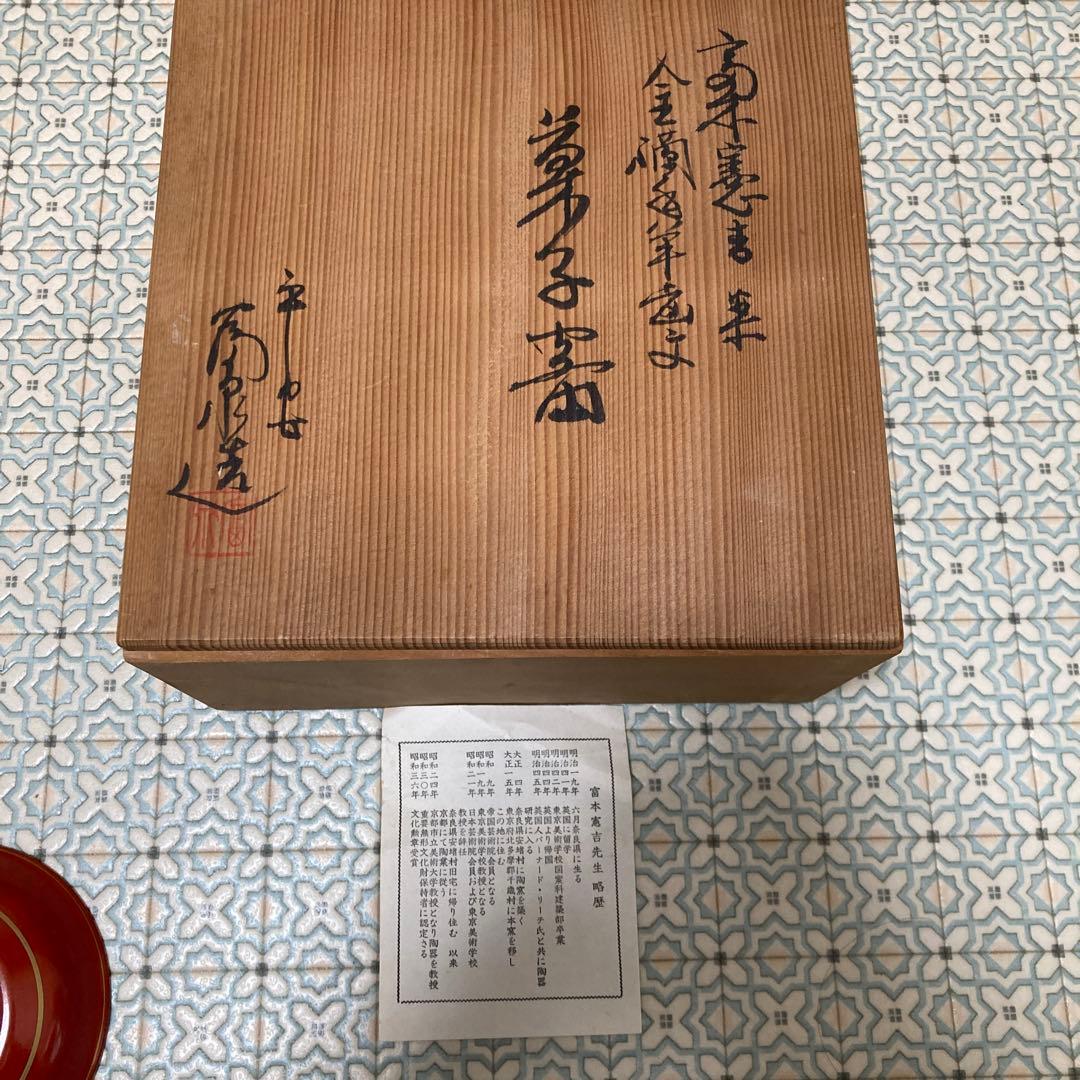 富本憲吉 案
金襴手羊歯文
菓子器
平安
造
富本憲吉先生略歴
明治一九年 六月奈良県に生る
明治四一年 英国に留学
明治四二年 東京美術学校図案科建築部卒業
明治四四年 英国より帰国
明治四五年 英国人バーナード・リーチ氏と共に陶器
研究に入る
大正 四年 奈良県安堵村に陶窯を築く
大正一五年 東京府北多摩郡千歳村に本窯を移し
この地に住む
昭和 九年 帝国芸術院会員となる
昭和一九年 東京美術学校教授となる
昭和二一年 日本芸術院会員および東京美術学校
教授を辞任
奈良県安堵村旧宅に帰り住む 以来
京都にて陶業に従う
昭和二四年 京都市立美術大学教授となり陶器を教授
昭和三〇年 重要無形文化財保持者に認定さる
昭和三六年 文化勲章受賞